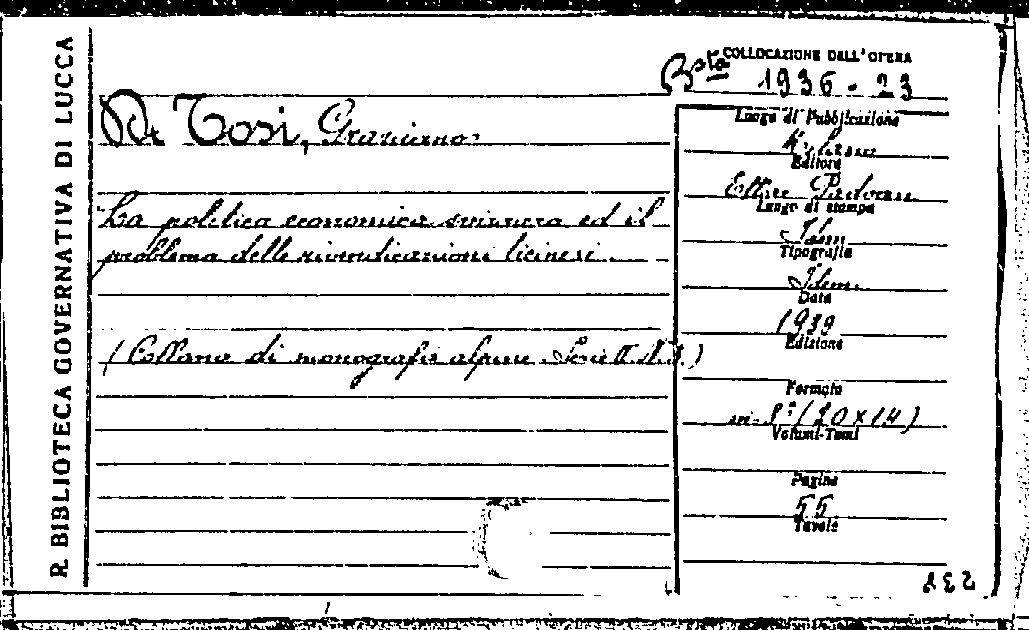 R. BIBLIOTECA GOVERNATIVA DI LUCCA
COLLOCAZIONE DALL'OPERA
Bsta 1936 - 23
De Tosi, Graziano
La politica economica svizzera ed il
problema delle rivendicazioni ticinesi.
(Collana di monografie alpine. Serie II. N. 3.)
Luogo di Pubblicazione
Milano
Editore
Ettore Padoan
Luogo di stampa
Idem
Tipografia
Idem
Data
1939
Edizione
Formato
in-8° (20x14)
Volumi-Tomi
Pagine
55
Tavole